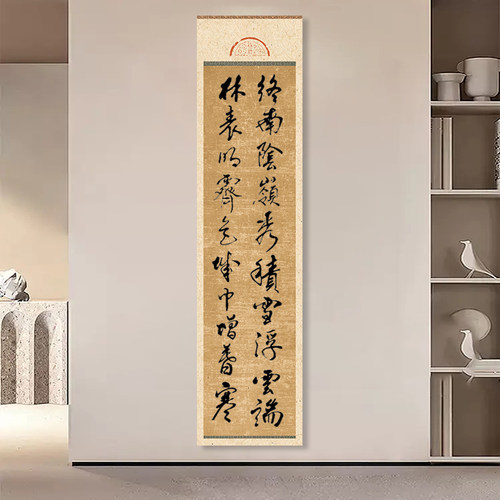 終南陰嶺秀積雪浮雲端
林表明霽色城中增暮寒